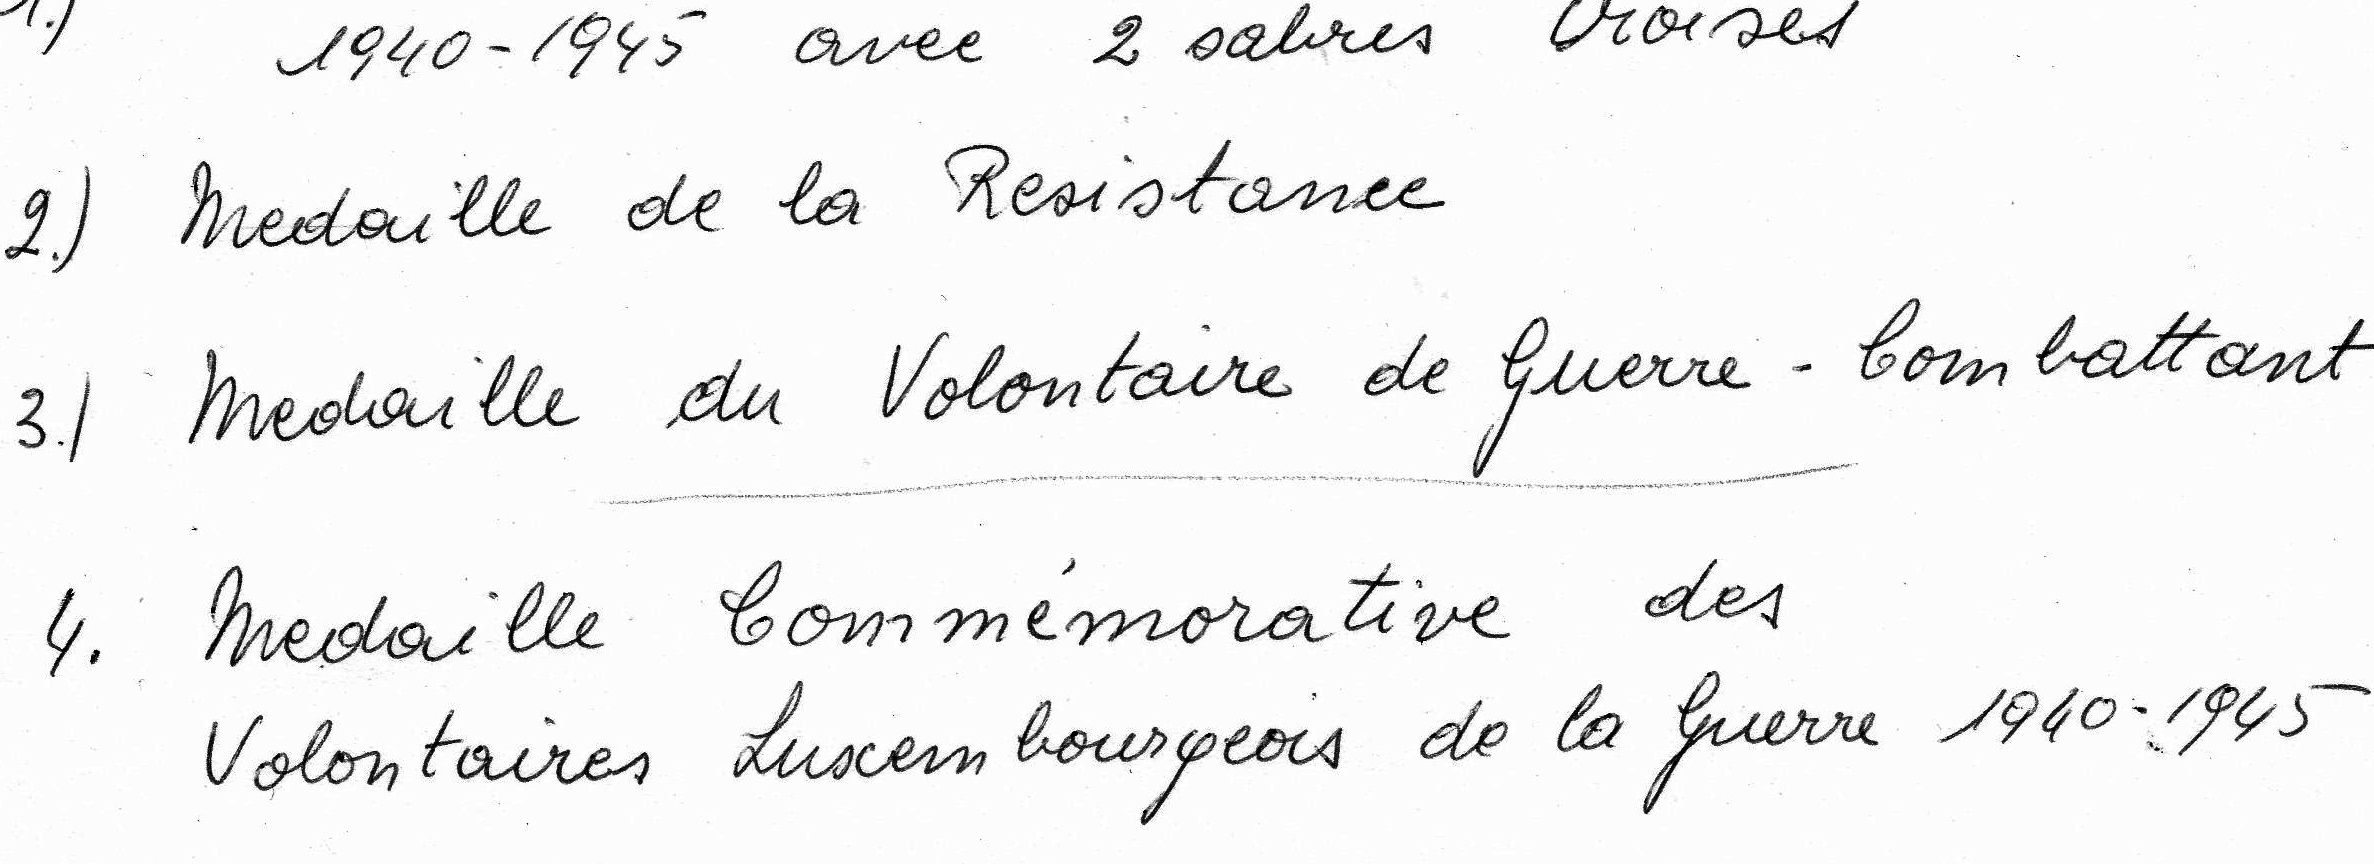 1.) 1940-1945 avec 2 sabres Croisés
2.) Medaille de la Resistance
3.) Medaille du Volontaire de Guerre - Combattant
4. Medaille Commémorative des
Volontaires Luxembourgeois de la Guerre 1940-1945